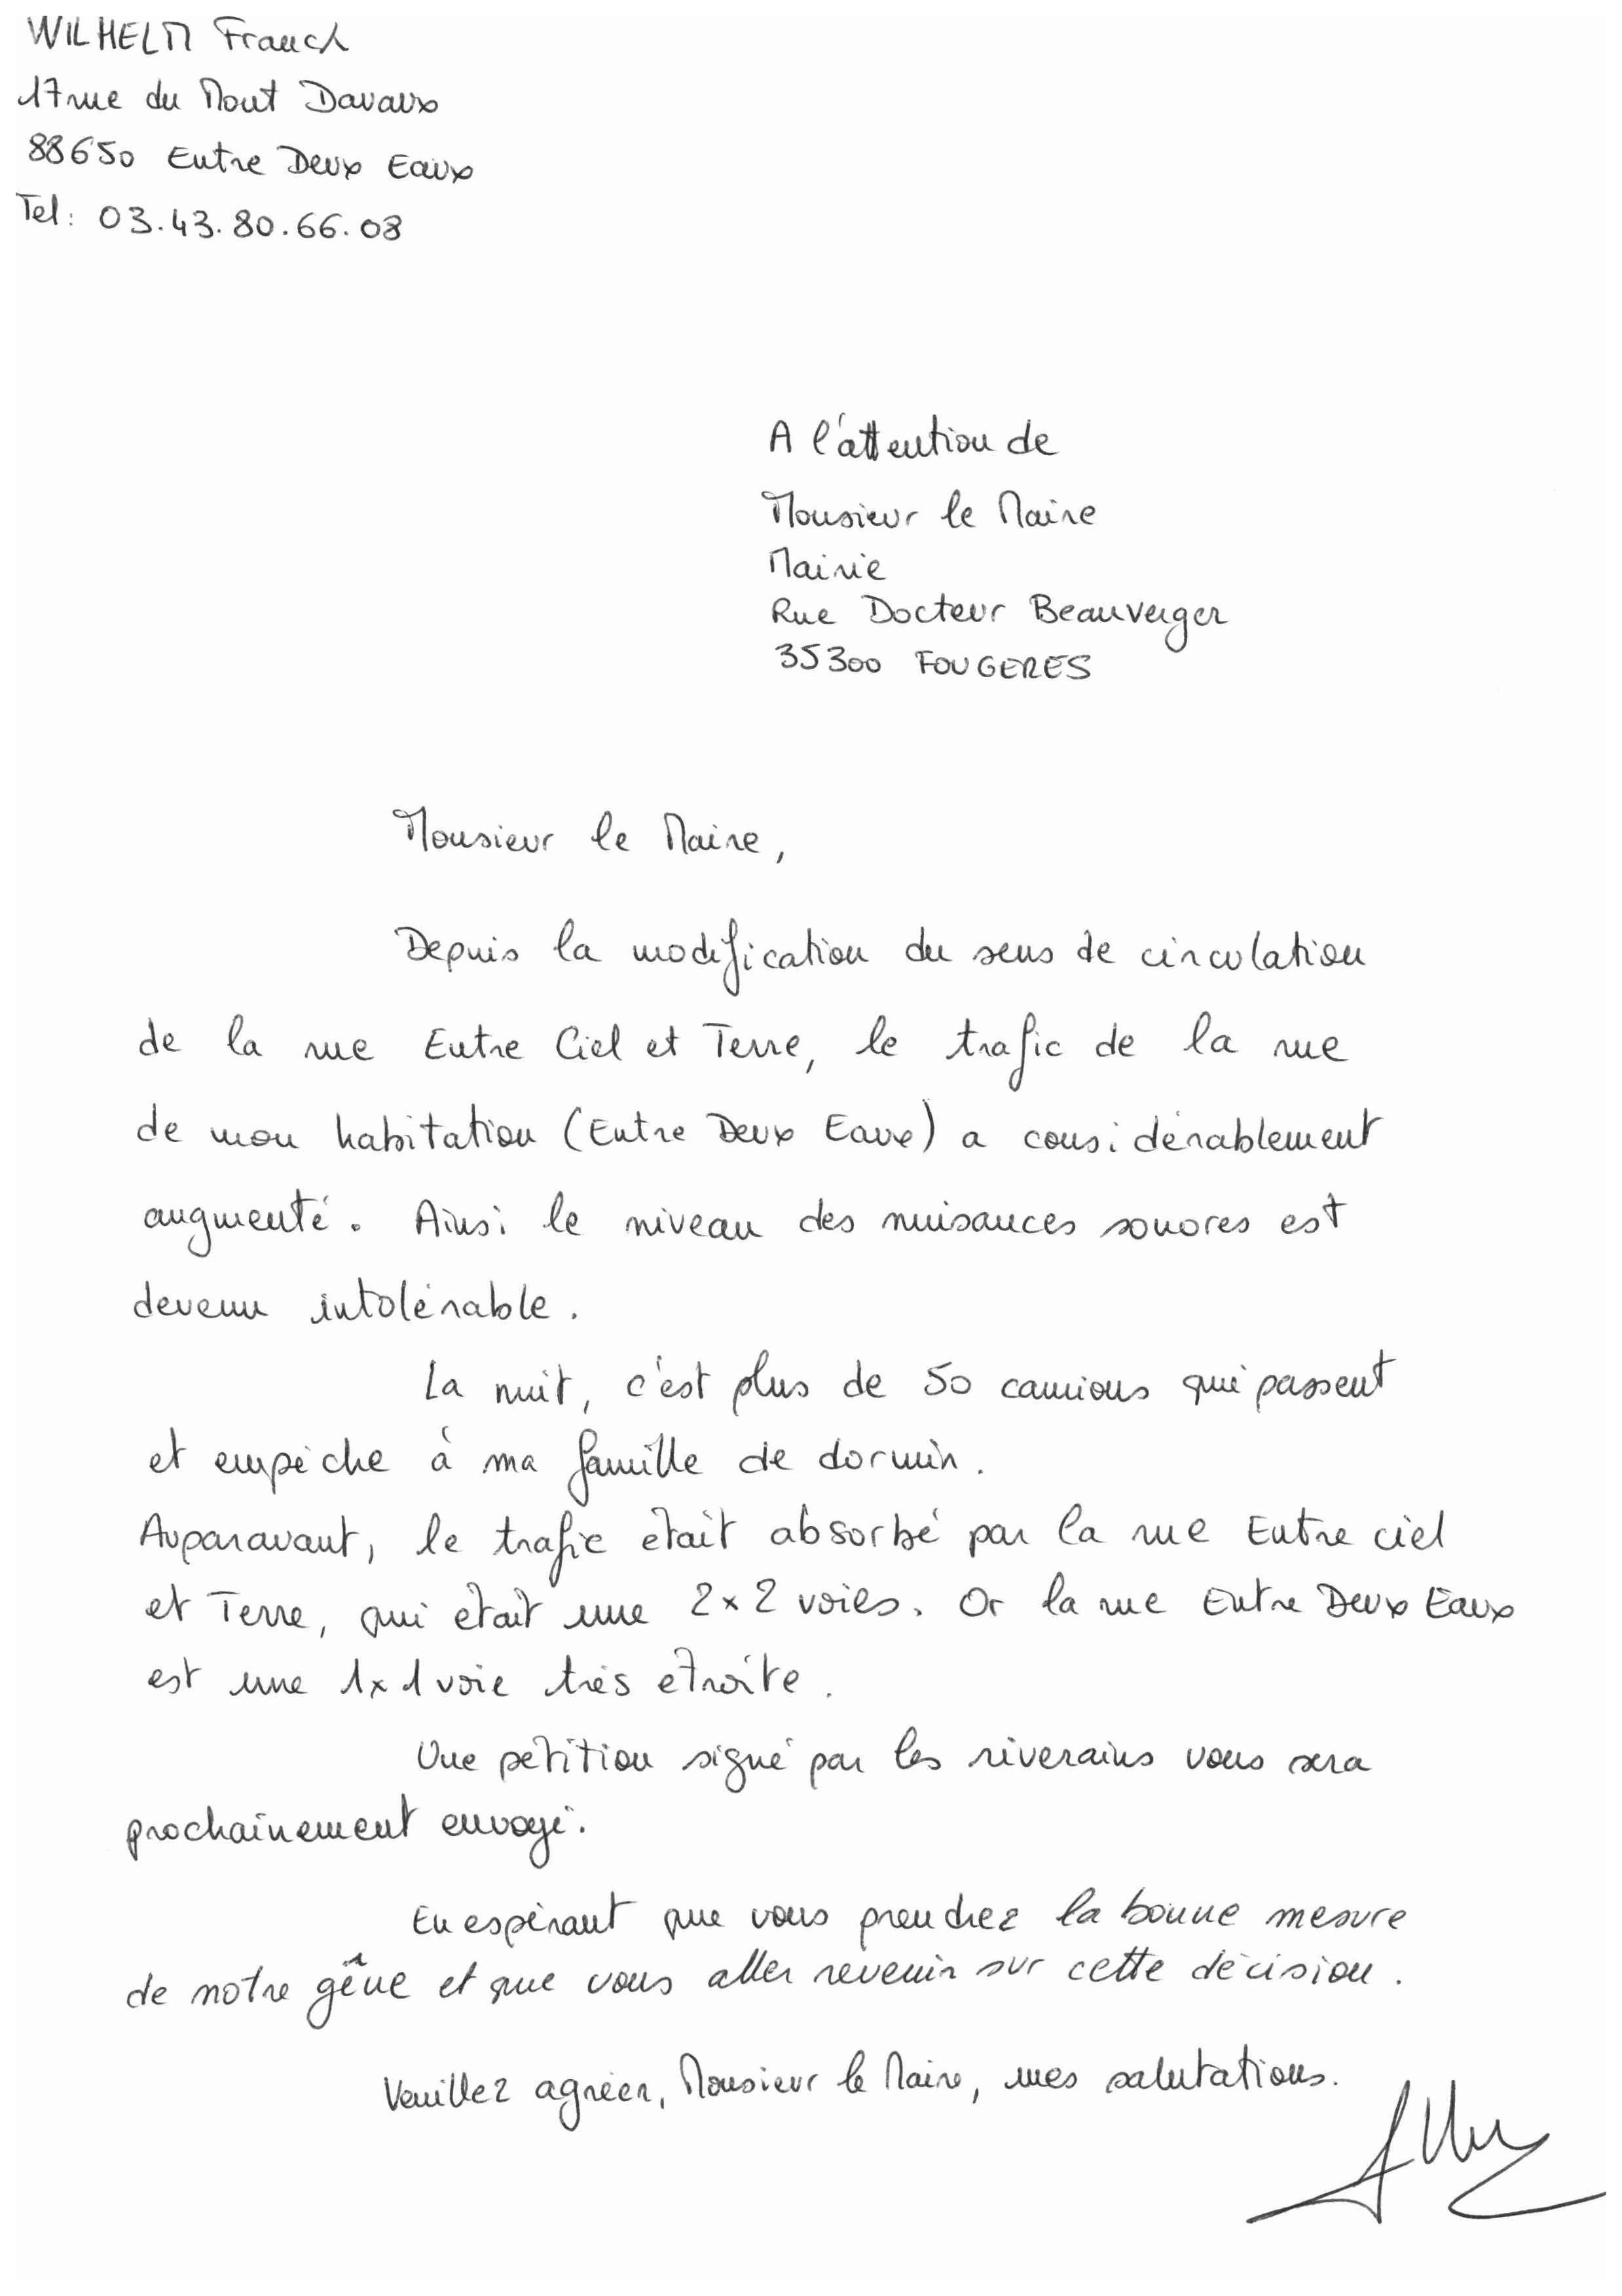 WILHELM Franck
17 rue du Mont Davaux
88650 Entre Deux Eaux
Tel: 03.43.80.66.08
A l'attention de
Monsieur le Maire
Mairie
Rue Docteur Beauverger
35300 FOUGERES
Monsieur le Maire,
Depuis la modification du sens de circulation
de la rue Entre Ciel et Terre, le trafic de la rue
de mon habitation (Entre Deux Eaux) a considérablement
augmenté. Ainsi le niveau des nuisances sonores est
devenu intolérable.
La nuit, c'est plus de 50 camions qui passent
et empêche à ma famille de dormir.
Auparavant, le trafic était absorbé par la rue Entre ciel
et Terre, qui était une 2x2 voies. Or la rue Entre Deux Eaux
est une 1x1 voie très étroite.
Une pétition signé par les riverains vous sera
prochainement envoyé.
En espérant que vous prendrez la bonne mesure
de notre gêne et que vous aller revenir sur cette décision.
Veuillez agréer, Monsieur le Maire, mes salutations.